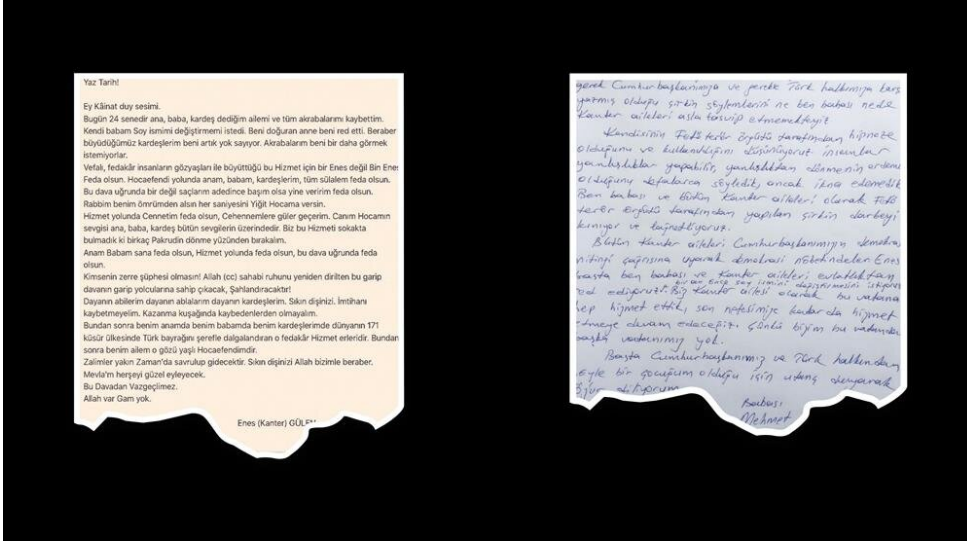 Yaz Tarih!
Ey Kâinat duy sesimi.
Bugün 24 senedir ana, baba, kardeş dediğim ailemi ve tüm akrabalarımı kaybettim.
Kendi babam Soy ismimi değiştirmemi istedi. Beni doğuran anne beni red etti. Beraber
büyüdüğümüz kardeşlerim beni artık yok sayıyor. Akrabalarım beni bir daha görmek
istemiyorlar.
Vefalı, fedakâr insanların gözyaşları ile büyüttüğü bu Hizmet için bir Enes değil Bin Enes
Feda olsun. Hocaefendi yolunda anam, babam, kardeşlerim, tüm sülalem feda olsun.
Bu dava uğrunda bir değil saçlarım adedince başım olsa yine veririm feda olsun.
Rabbim benim ömrümden alsın her saniyesini Yiğit Hocama versin.
Hizmet yolunda Cennetim feda olsun, Cehennemlere güler geçerim. Canım Hocamın
sevgisi ana, baba, kardeş bütün sevgilerin üzerindedir. Biz bu Hizmeti sokakta
bulmadık ki birkaç Pakrudin dönme yüzünden bırakalım.
Anam Babam sana feda olsun, Hizmet yolunda feda olsun, bu dava uğrunda feda
olsun.
Kimsenin zerre şüphesi olmasın! Allah (cc) sahabi ruhunu yeniden dirilten bu garip
davanın garip yolcularına sahip çıkacak, Şahlandıracaktır!
Dayanın abilerim dayanın ablalarım dayanın kardeşlerim. Sıkın dişinizi. İmtihanı
kaybetmeyelim. Kazanma kuşağında kaybedenlerden olmayalım.
Bundan sonra benim anamda benim babamda benim kardeşlerimde dünyanın 171
küsür ülkesinde Türk bayrağını şerefle dalgalandıran o fedakâr Hizmet erleridir. Bundan
sonra benim ailem o gözü yaşlı Hocaefendimdir.
Zalimler yakın Zaman'da savrulup gidecektir. Sıkın dişinizi Allah bizimle beraber.
Mevla'm herşeyi güzel eyleyecek.
Bu Davadan Vazgeçilmez.
Allah var Gam yok.
Enes (Kanter) GÜLEN
gerek Cumhurbaşkanımıza ve gerekse Türk halkımıza karşı
yazmış olduğu çirkin söylemlerini ne ben babası nede
Kanter aileleri asla tasvip etmemekteyiz
Kendisinin Fetö terör örgütü tarafından hipnoze
olduğunu ve kullanıldığını düşünüyoruz insanlar
yanlışlıklar yapabilir, yanlışlıktan dönmenin erdem
olduğunu defalarca söyledik, ancak ikna edemedik
Ben babası ve Bütün Kanter aileleri olarak Fetö
terör örgütü tarafından yapılan çirkin darbeyi
kınıyor ve lanetliyoruz.
Bütün Kanter aileleri Cumhurbaşkanımızın demokrasi
mitingi çağrısına uyarak demokrasi nöbetindeler Enes
başta ben babası ve Kanter aileleri evlatlıktan
bir an önce soy ismini değiştirmesini istiyoruz
red ediyoruz. Biz Kanter ailesi olarak bu vatana
hep hizmet ettik, son nefesimize kadar da hizmet
etmeye devam edeceğiz. Çünkü bizim bu vatandan
başka vatanımız yok.
Başta Cumhurbaşkanımız ve Türk halkından
böyle bir çocuğum olduğu için utanç duyarak
özür diliyorum
Babası
Mehmet